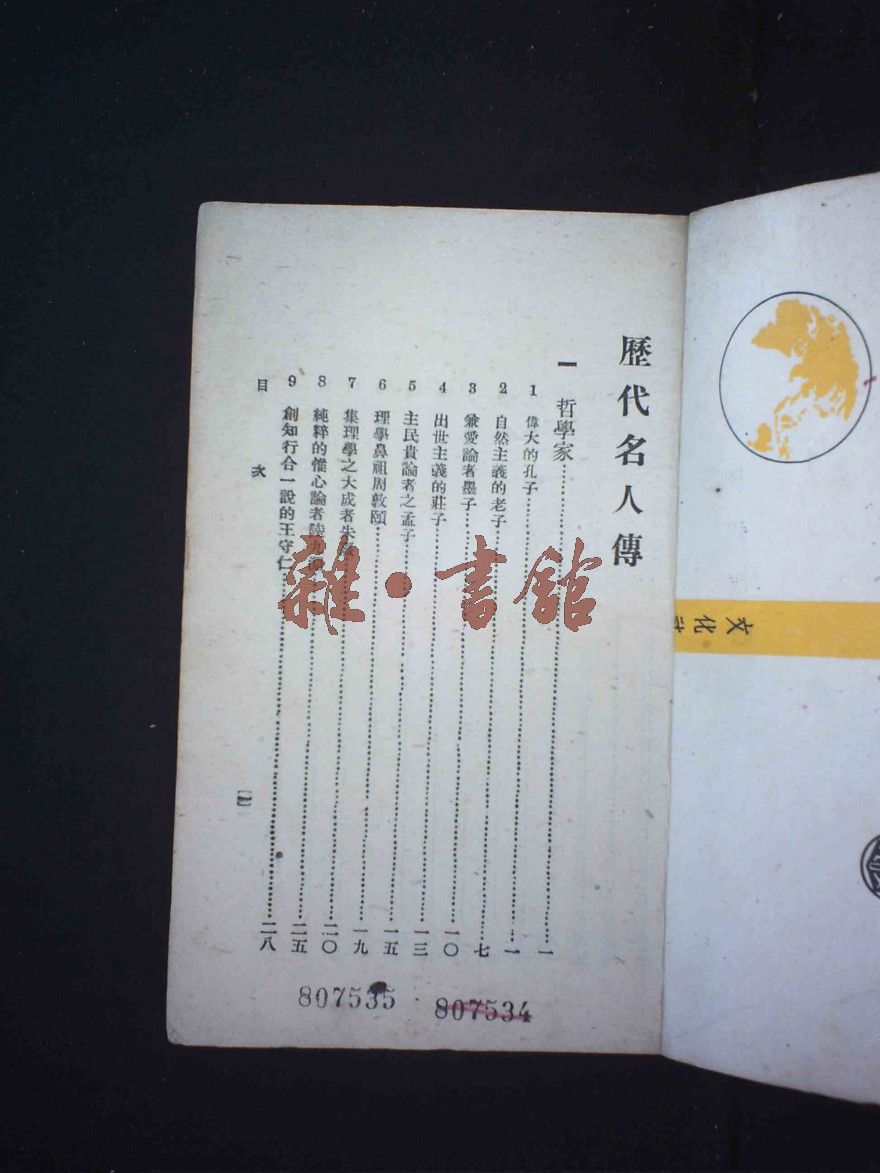 歷代名人傳
一 哲學家……一
1 偉大的孔子……一
2 自然主義的老子……七
3 兼愛論者墨子……一〇
4 出世主義的莊子……一三
5 主民貴論者之孟子……一五
6 理學鼻祖周敦頤……一九
7 集理學之大成者朱……二〇
8 純粹的惟心論者陸九……二五
9 創知行合一說的王守仁……二八
目次
雜·書館
807535
807534
文化